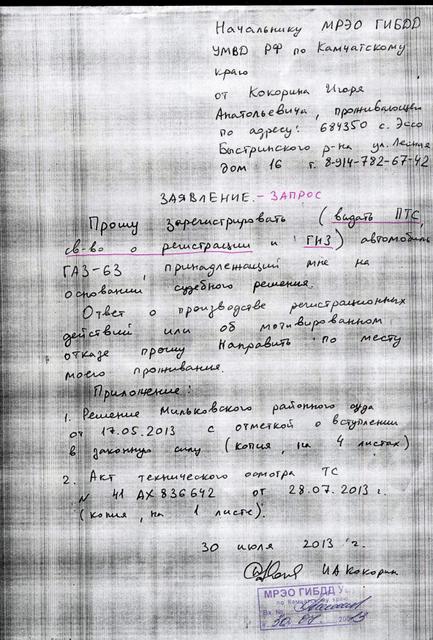 Начальнику МРЭО ГИБДД
УМВД РФ по Камчатскому
краю
от Кокорина Игоря
Анатольевича, проживающего
по адресу: 684350 с. Эссо
Быстринского р-на ул. Лесная
дом 16 т. 8-914-782-67-42
ЗАЯВЛЕНИЕ. - ЗАПРОС
Прошу зарегистрировать (выдать ПТС,
св-во о регистрации и ГНЗ) автомобиль
ГАЗ-63, принадлежащий мне на
основании судебного решения.
Ответ о производстве регистрационных
действий или об мотивированном
отказе прошу направить по месту
моего проживания.
Приложение:
1. Решение Мильковского районного суда
от 17.05.2013 с отметкой о вступлении
в законную силу (копия, на 4 листах)
2. Акт технического осмотра ТС
N 41 АХ 836642 от 28.07.2013 г.
(копия, на 1 листе).
30 июля 2013 г.
ИА Кокорин
МРЭО ГИБДД У
по Камчатскому краю
Вх. №